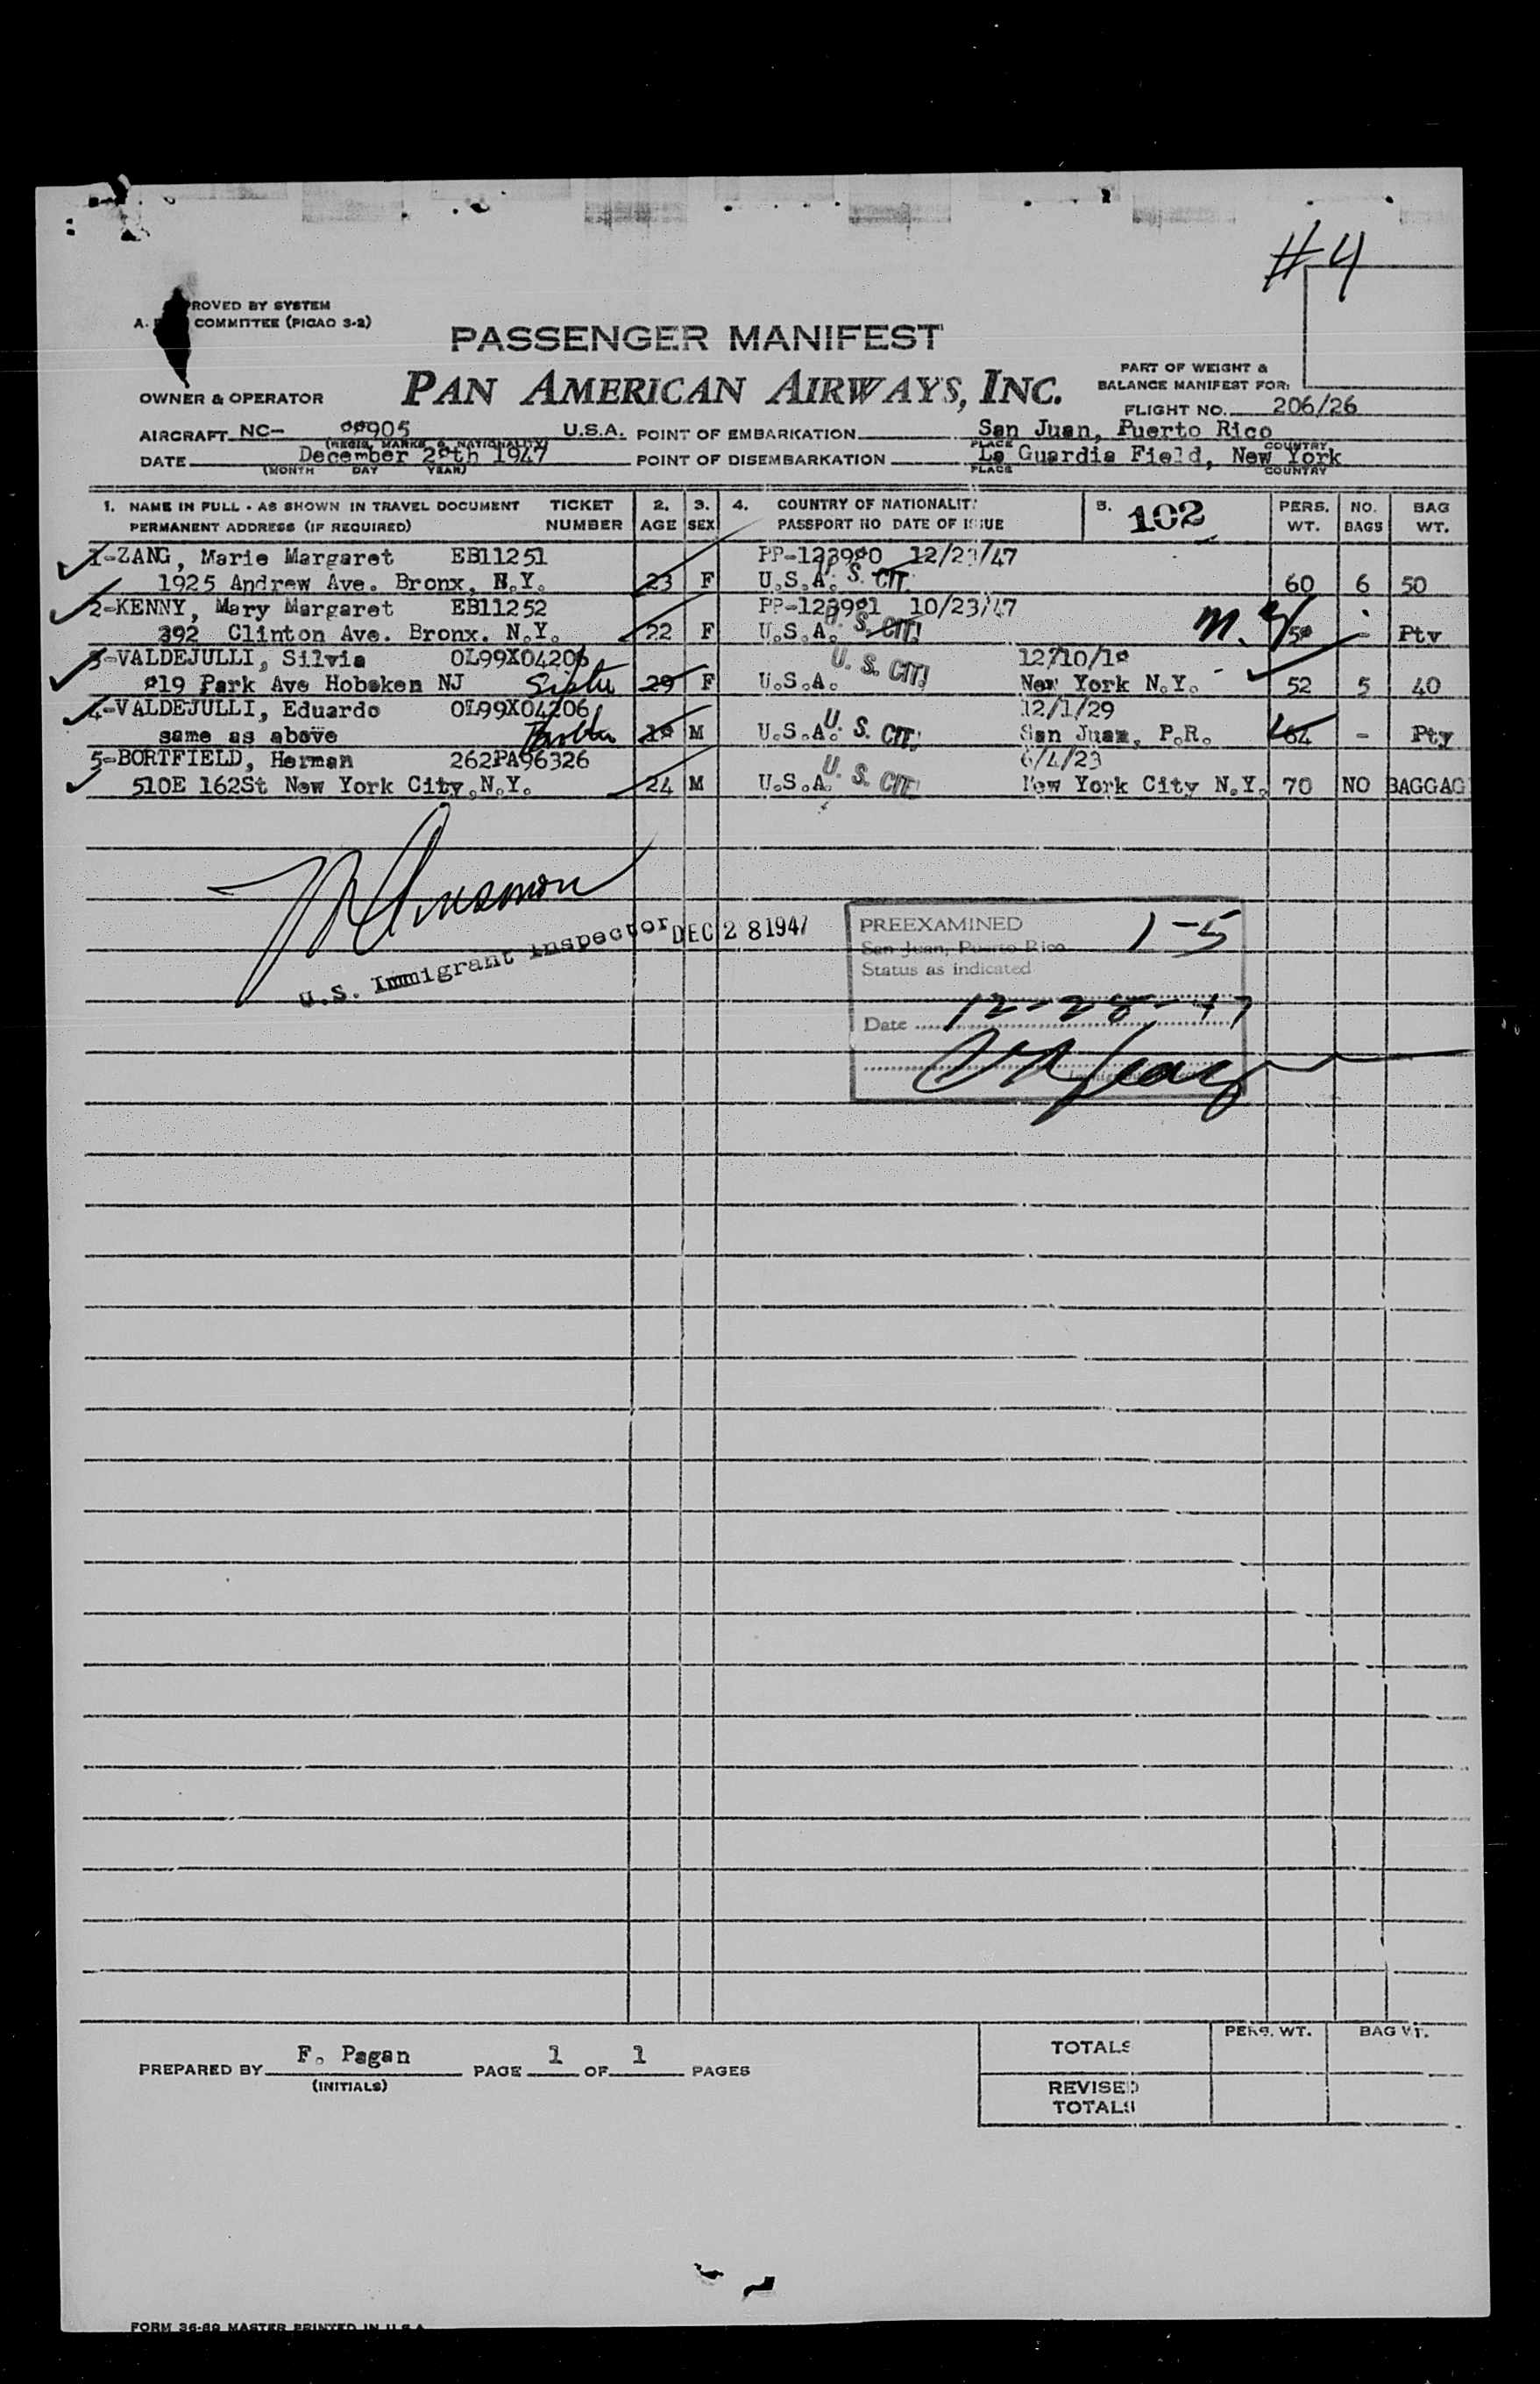 #4
ROVED BY SYSTEM
A. COMMITTEE (PICAO 3-2)
PASSENGER MANIFEST
PAN AMERICAN AIRWAYS, INC.
PART OF WEIGHT &
BALANCE MANIFEST FOR:
OWNER & OPERATOR
FLIGHT NO. 206/26
AIRCRAFT NC- 88905 U.S.A. POINT OF EMBARKATION San Juan, Puerto Rico
(REGIS. MARKS & NATIONALITY) PLACE COUNTRY
DATE December 28th 1947 POINT OF DISEMBARKATION La Guardia Field, New York
(MONTH DAY YEAR) PLACE COUNTRY
1. NAME IN FULL - AS SHOWN IN TRAVEL DOCUMENT TICKET 2. 3. 4. COUNTRY OF NATIONALITY 5. 102 PERS. NO. BAG
PERMANENT ADDRESS (IF REQUIRED) NUMBER AGE SEX PASSPORT NO DATE OF ISSUE WT. BAGS WT.
1-ZANG, Marie Margaret EB11251 PP-123980 12/23/47
1925 Andrew Ave. Bronx, N.Y. 23 F U.S.A. U. S. CIT. 60 6 50
2-KENNY, Mary Margaret EB11252 PP-123981 10/23/47
392 Clinton Ave. Bronx. N.Y. 22 F U.S.A. U. S. CIT. 58 - Pty
3-VALDEJULLI, Silvia OL99X04206 12/10/18
819 Park Ave Hoboken NJ Sister 29 F U.S.A. U. S. CIT. New York N.Y. 52 5 40
4-VALDEJULLI, Eduardo OL99X04206 12/1/29
same as above Brother 18 M U.S.A. U. S. CIT. San Juan, P.R. 64 - Pty
5-BORTFIELD, Herman 262PA96326 6/4/23
510E 162St New York City,N.Y. 24 M U.S.A. U. S. CIT. New York City N.Y. 70 NO BAGGAG
U.S. Immigrant Inspector DEC 28 1947
PREEXAMINED 1-5
San Juan, Puerto Rico
Status as indicated
Date 12-28-47
PREPARED BY F. Pagan PAGE 1 OF 1 PAGES
(INITIALS)
TOTALS PERS. WT. BAG WT.
REVISED
TOTALS
FORM 36-89 MASTER PRINTED IN U.S.A.